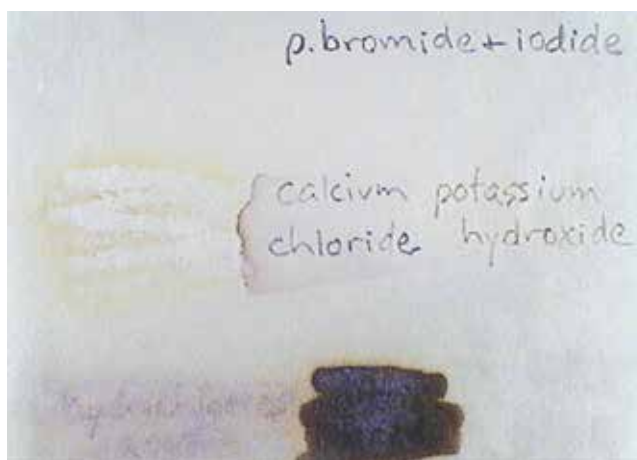 p. bromide + iodide
calcium potassium
chloride hydroxide